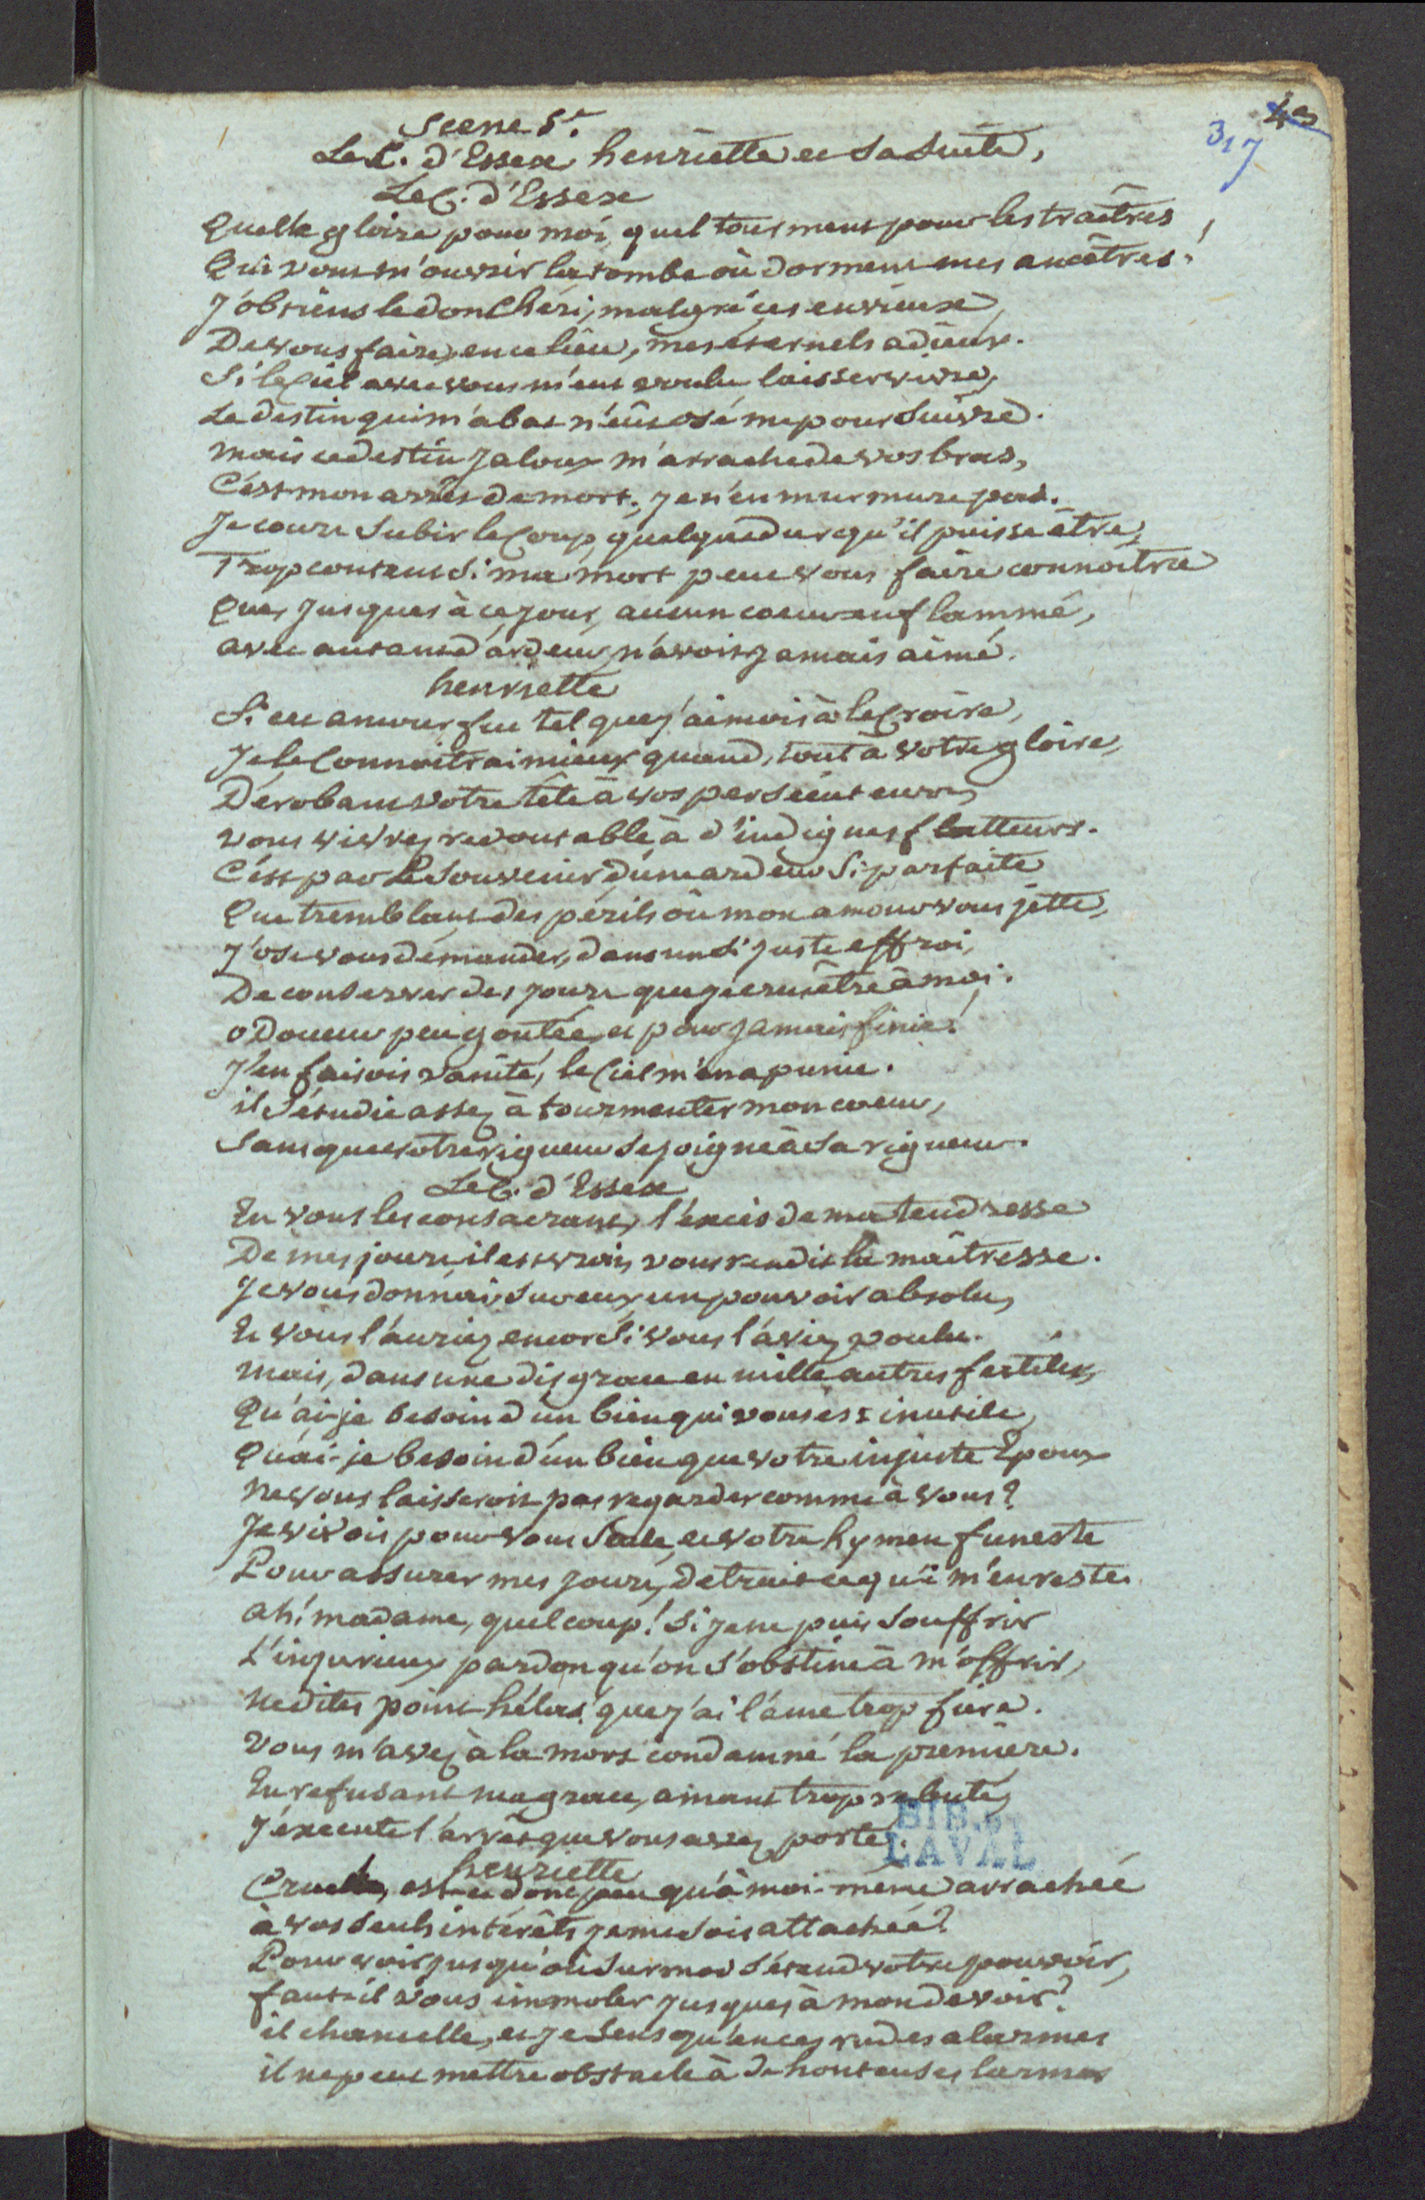 317
Scene 5e.
Le C. d'Essex henriette et sa suite,
Le C. d'Essex
Quelle gloire pour moi, quel tourment pour les traîtres
Qui vont m'ouvrir la tombe où dorment mes ancêtres!
J'obtiens le don chéri, malgré ces envieux,
De vous faire, en ce lieu, mes éternels adieux.
Si le Ciel avec vous m'eut voulu laisser vivre,
Le destin qui m'abat n'eût osé me poursuivre.
mais ce destin jaloux m'arrache de vos bras,
C'est mon arrêt de mort, je n'en murmure pas.
Je cours subir le Coup, quelque dur qu'il puisse être,
Trop content si ma mort peut vous faire connoître
Que, jusques à ce jour, aucun coeur enflammé,
avec autant d'ardeur, n'avoit jamais aimé.
henriette
Si cet amour fut tel que j'aimois à le Croire,
Je le Connoitrai mieux quand, tout à votre gloire,
Dérobant votre tête à vos persécuteurs,
vous vivrez redoutable à d'indignes flatteurs.
C'est par le souvenir d'une ardeur si parfaite
Que tremblant des périls où mon amour vous jette,
J'ose vous demander, dans un si juste effroi,
De conserver des jours que je crus être à moi.
o Douceur peu goutée, et pour jamais finie!
J'en faisois vanité, le Ciel m'en a punie.
il s'étudie assez à tourmenter mon coeur,
Sans que votre rigueur se joigne à sa rigueur.
Le C. d'Essex
En vous les consacrant, l'excès de ma tendresse
De mes jours, il est vrai, vous rendit la maîtresse.
Je vous donnai, sur eux, un pouvoir absolu,
Et vous l'auriez encor si vous l'aviez voulu.
mais, dans une disgrace en mille autres fertile,
Qu'ai-je besoin d'un bien qui vous est inutile,
Qu'ai-je besoin d'un bien que votre injuste Epoux
Ne vous laisseroit pas regarder comme à vous?
Je vivois pour vous seule, et votre hymen funeste
Pour assurer mes jours, detruit ce qui m'en reste.
ah! madame, quel coup! si je ne puis souffrir
L'injurieux pardon qu'on s'obstine à m'offrir,
Ne dites point hélas! que j'ai l'ame trop fiere.
Vous m'avez à la mort condamné la premiere.
En refusant ma grace, amant trop rebuté,
J'éxecute l'arrêt que vous avez porté.
henriette
Cruel, est-ce donc peu qu'à moi-même arrachée
à vos seuls intérêts je me sois attachée?
Pour voir jusqu'où sur moi s'étend votre pouvoir,
faut-il vous immoler jusques à mon devoir?
il chancelle, et je sens qu'en ces rudes alarmes
il ne peut mettre obstacle à de honteuses larmes
BIB.
LAVAL